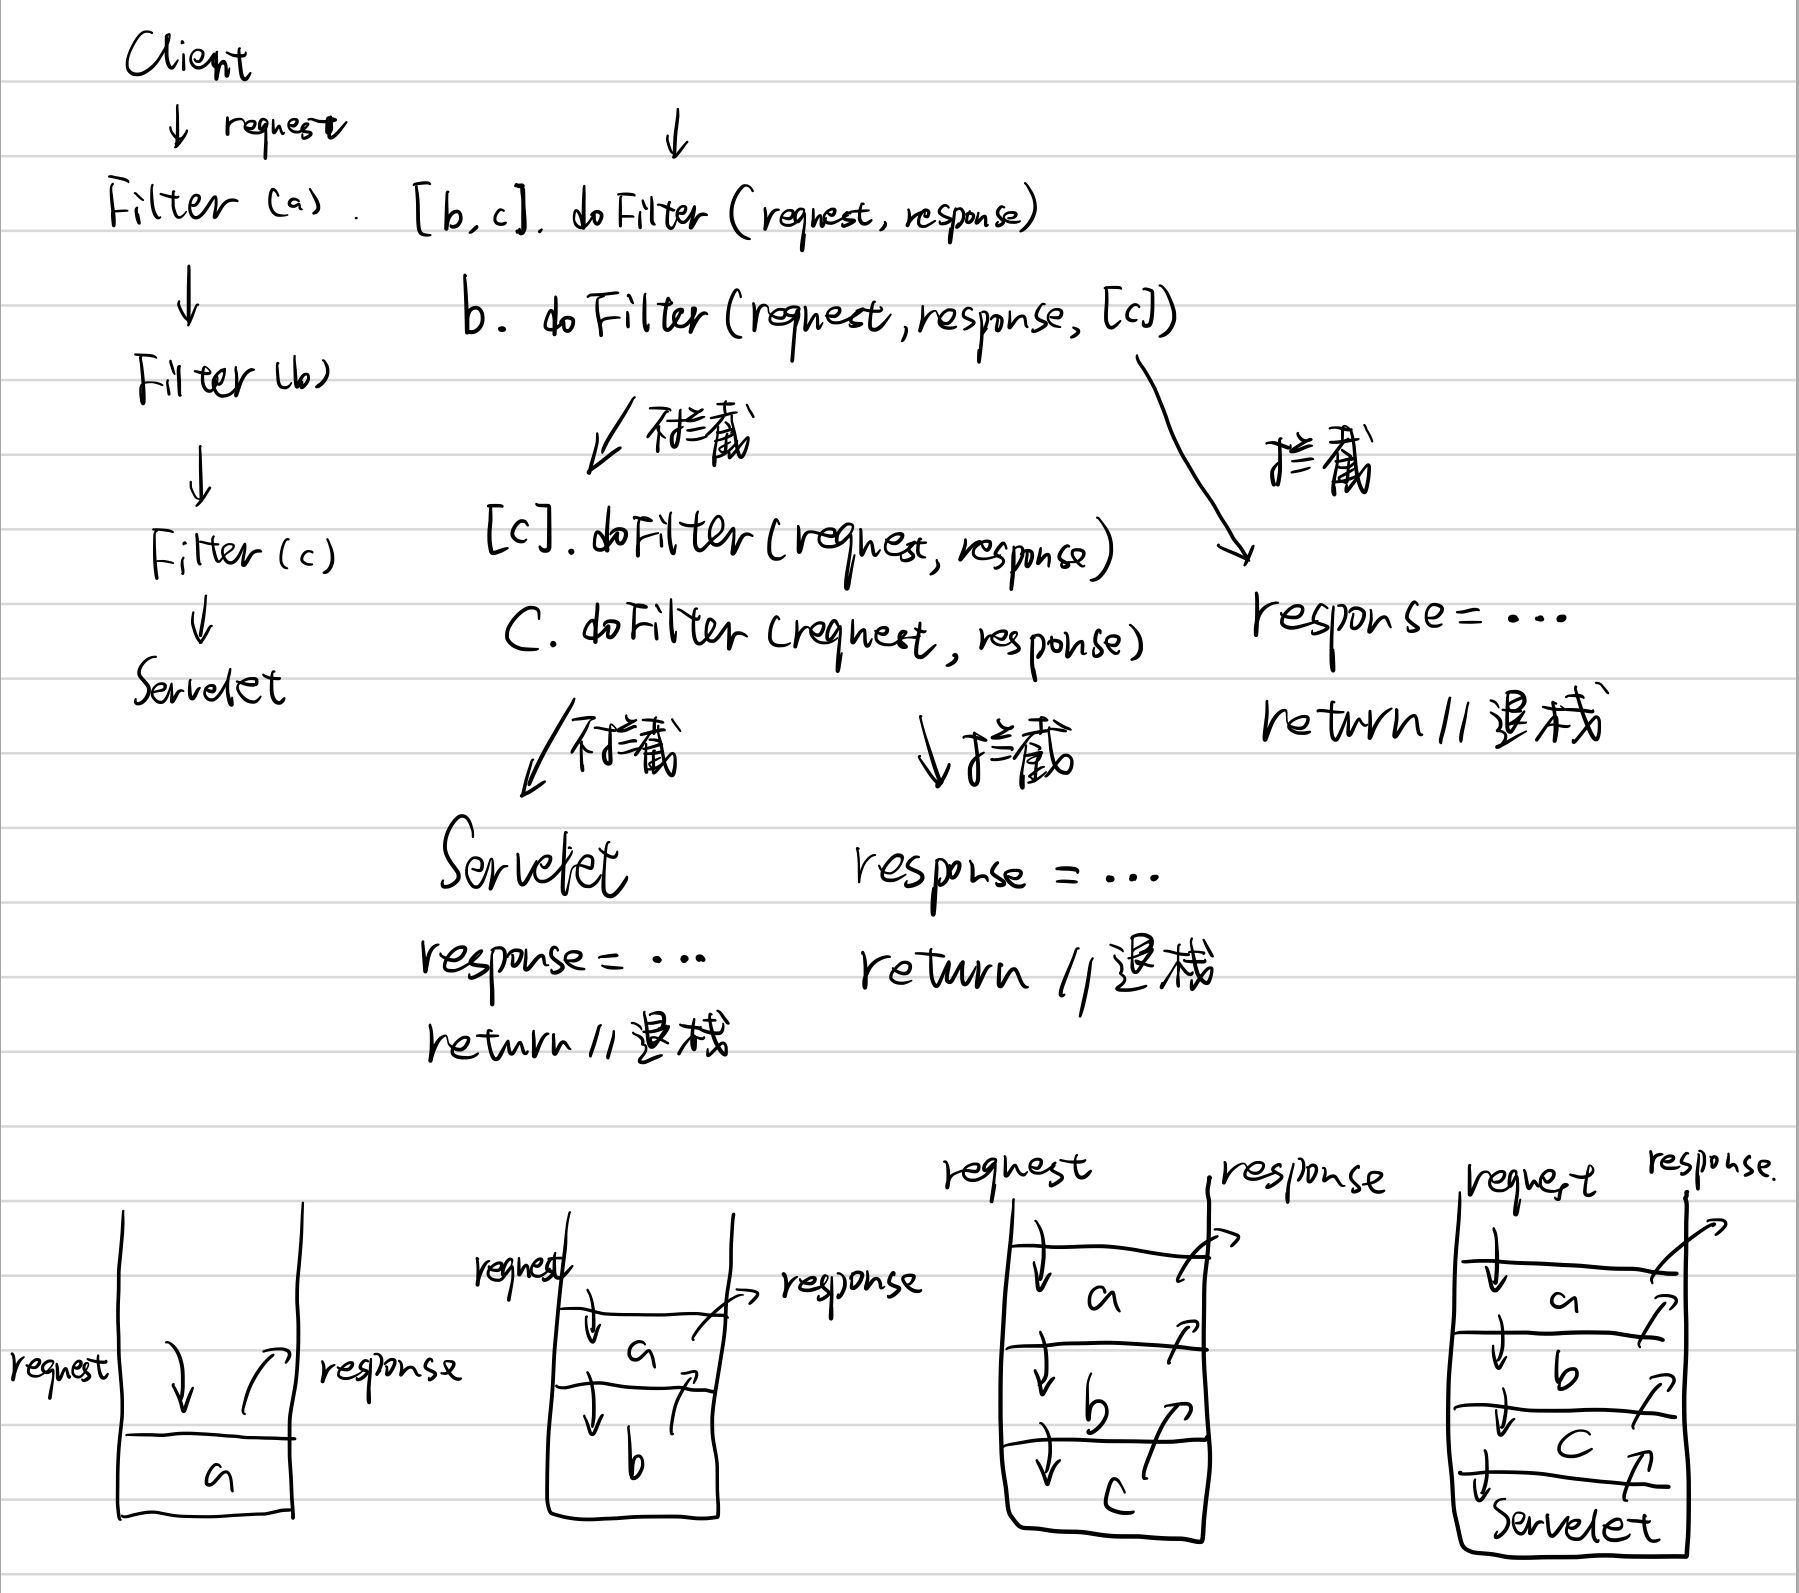 Client
↓ request
Filter (a).
↓
Filter (b)
↓
Filter (c)
↓
Servelet
↓
[b, c]. doFilter (request, response)
b. doFilter (request, response, [c])
不拦截
拦截
[c]. doFilter (request, response)
C. doFilter (request, response)
response = ...
return // 退栈
不拦截
拦截
Servelet
response = ...
return // 退栈
response = ...
return // 退栈
request
response
a
request
response
a
b
request
response
a
b
c
request
response.
a
b
c
Servelet